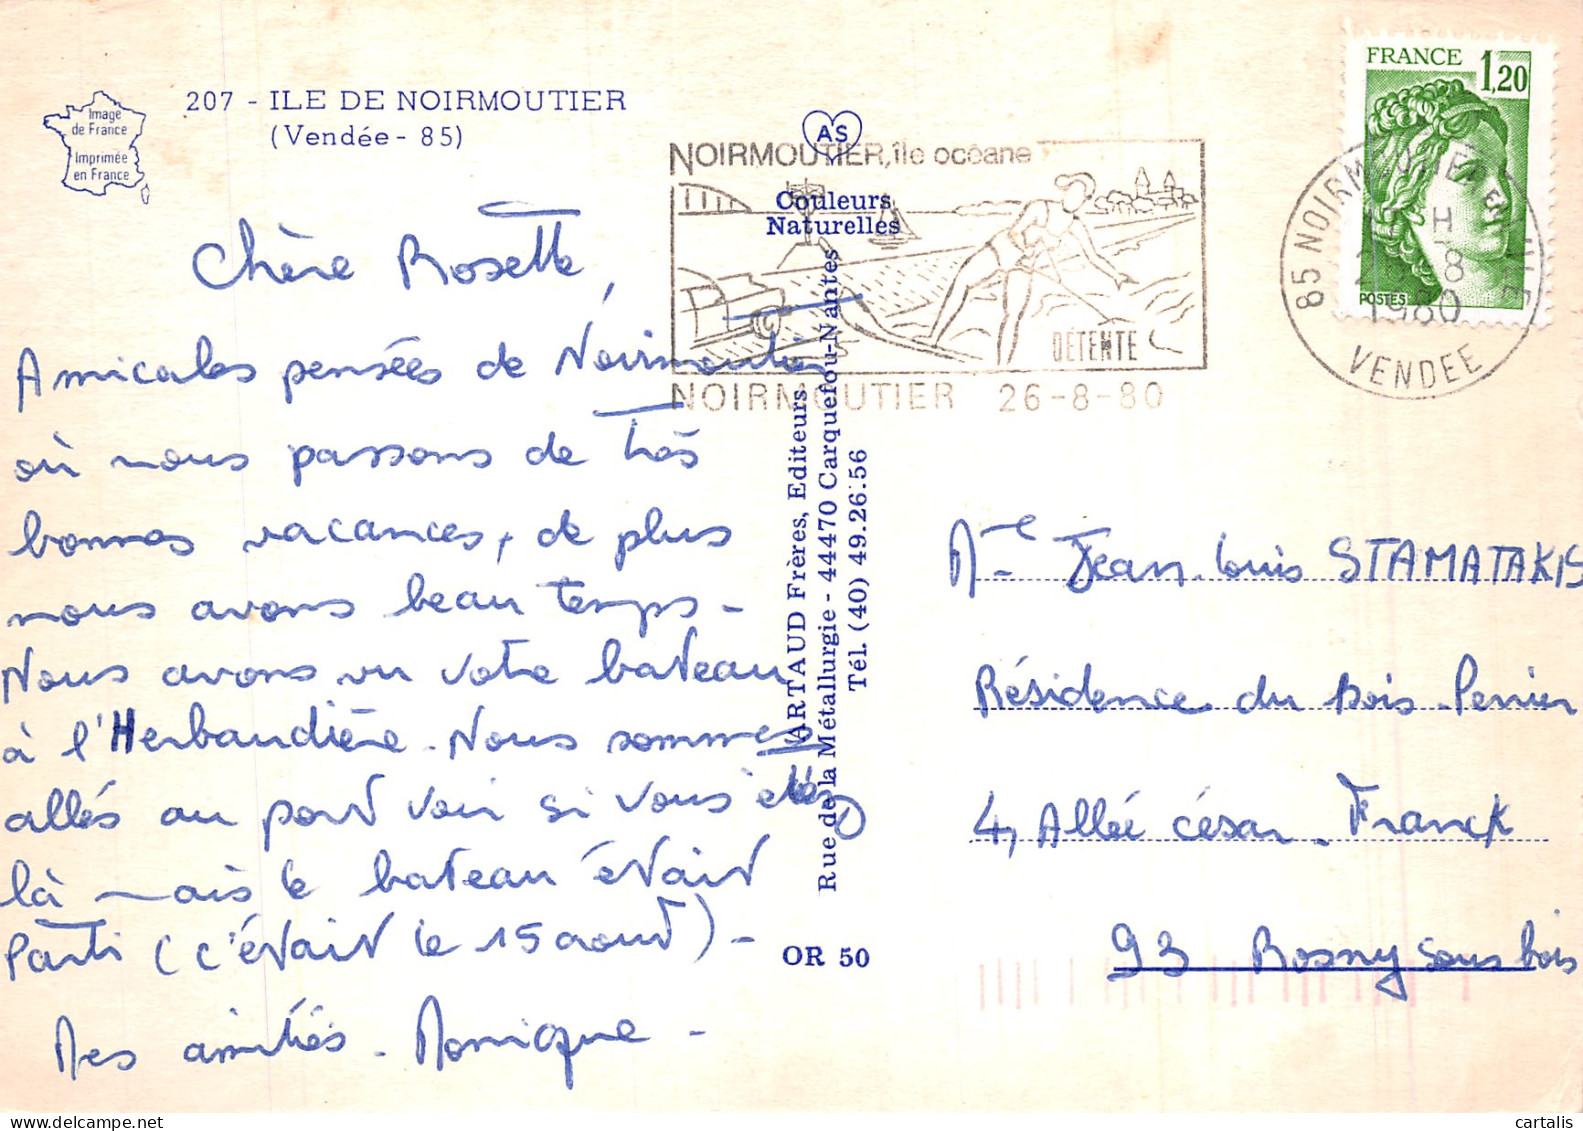 Image
de France
Imprimée
en France
207 - ILE DE NOIRMOUTIER
(Vendée - 85)
AS
Couleurs
Naturelles
NOIRMOUTIER, île océane
DÉTENTE
NOIRMOUTIER 26-8-80
FRANCE 1,20
POSTES
85 NOIRMOUTIER EN L'ILE
H
26-8
1980
VENDEE
Chère Rosette,
Amicales pensées de Noirmoutier
où nous passons de très
bonnes vacances, de plus
nous avons beau temps -
Nous avons vu votre bateau
à l'Herbaudière. Nous sommes
allés au port voir si vous étiez
là mais le bateau était
parti (c'était le 15 aout) -
Mes amitiés - Monique -
JARTAUD Frères, Editeurs
Rue de la Métallurgie - 44470 Carquefou-Nantes
Tél. (40) 49.26.56
OR 50
Me Jean-Louis STAMATAKIS
Résidence du Bois Perrier
4, Allée César-Franck
93 Rosny sous bois
cartalis